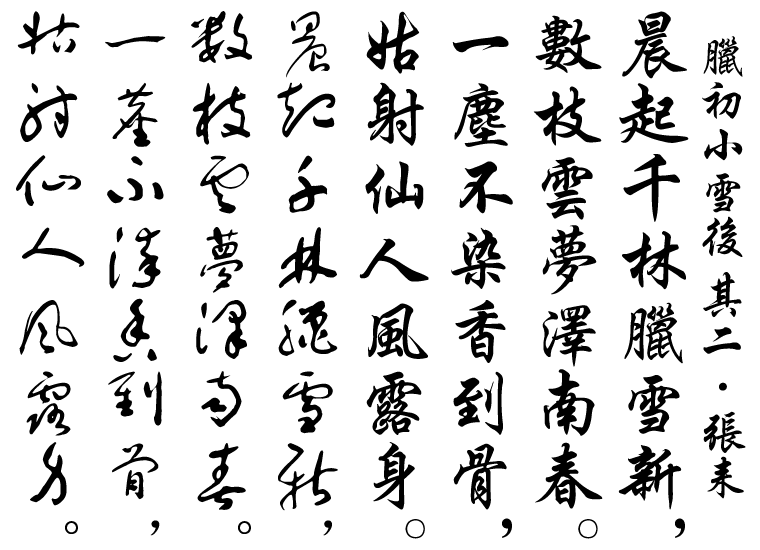 臘初小雪後其二·張耒
晨起千林臘雪新，
數枝雲夢澤南春。
一塵不染香到骨，
姑射仙人風露身。
晨起千林臘雪新，
數枝雲夢澤南春。
一塵不染香到骨，
姑射仙人風露身。